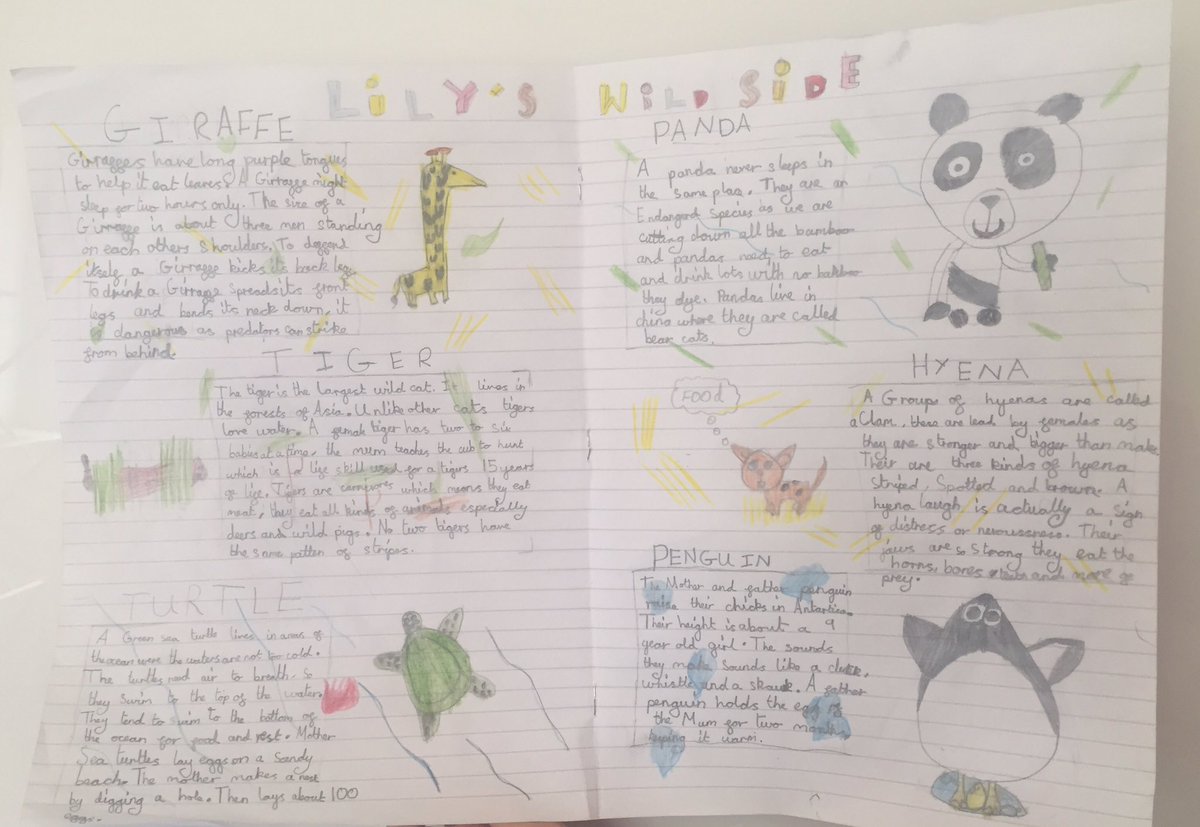 LiLY'S WiLD SiDE
GIRAFFE
Girraggers have long purple tongues
to help it eat leaves. A Girragge might
sleep for two hours only. The size of a
Girragge is about three men standing
on each others shoulders. To deggend
itself a Girragge kicks its back leg
To drink a Girragge spreads its front
legs and bends its neck down, it
is dangerous as predators can strike
from behind.
TIGER
The tiger is the largest wild cat. It lives in
the forests of Asia. Unlike other cats tigers
love water. A female tiger has two to six
babies at a time. the mum teaches the cub to hunt
which is a life skill used for a tigers 15 years
of life. Tigers are carnivores which means they eat
meat, they eat all kinds of animals especially
deers and wild pigs. No two tigers have
the same patten of stripes.
TURTLE
A Green sea turtle lives in areas of
the ocean were the waters are not too cold.
The turtles need air to breath, so
they swim to the top of the water.
They tend to swim to the bottom of
the ocean for food and rest. Mother
Sea turtles lay eggs on a Sandy
beach. The mother makes a nest
by digging a hole. Then lays about 100
eggs.
PANDA
A panda never sleeps in
the same place. They are an
Endangerd species as we are
cutting down all the bamboo
and pandas need to eat
and drink lots with no bamboo
they dye. Pandas live in
china where they are called
bear cats.
HYENA
FOOd
A Group of hyenas are called
a Clam, these are lead by females as
they are stronger and bigger than males
Their are three kinds of hyena
Striped, Spotted and brown. A
hyena laugh is actually a sign
of distress or nervousness. Their
jaws are so strong they eat the
horns, bones and more of
prey.
PENGUIN
The Mother and father penguin
raise their chicks in Antartica.
Their height is about a 9
year old girl. The sounds
they make sounds like a
whistle and a A father
penguin holds the egg of
the Mum for two months
keping it warm.